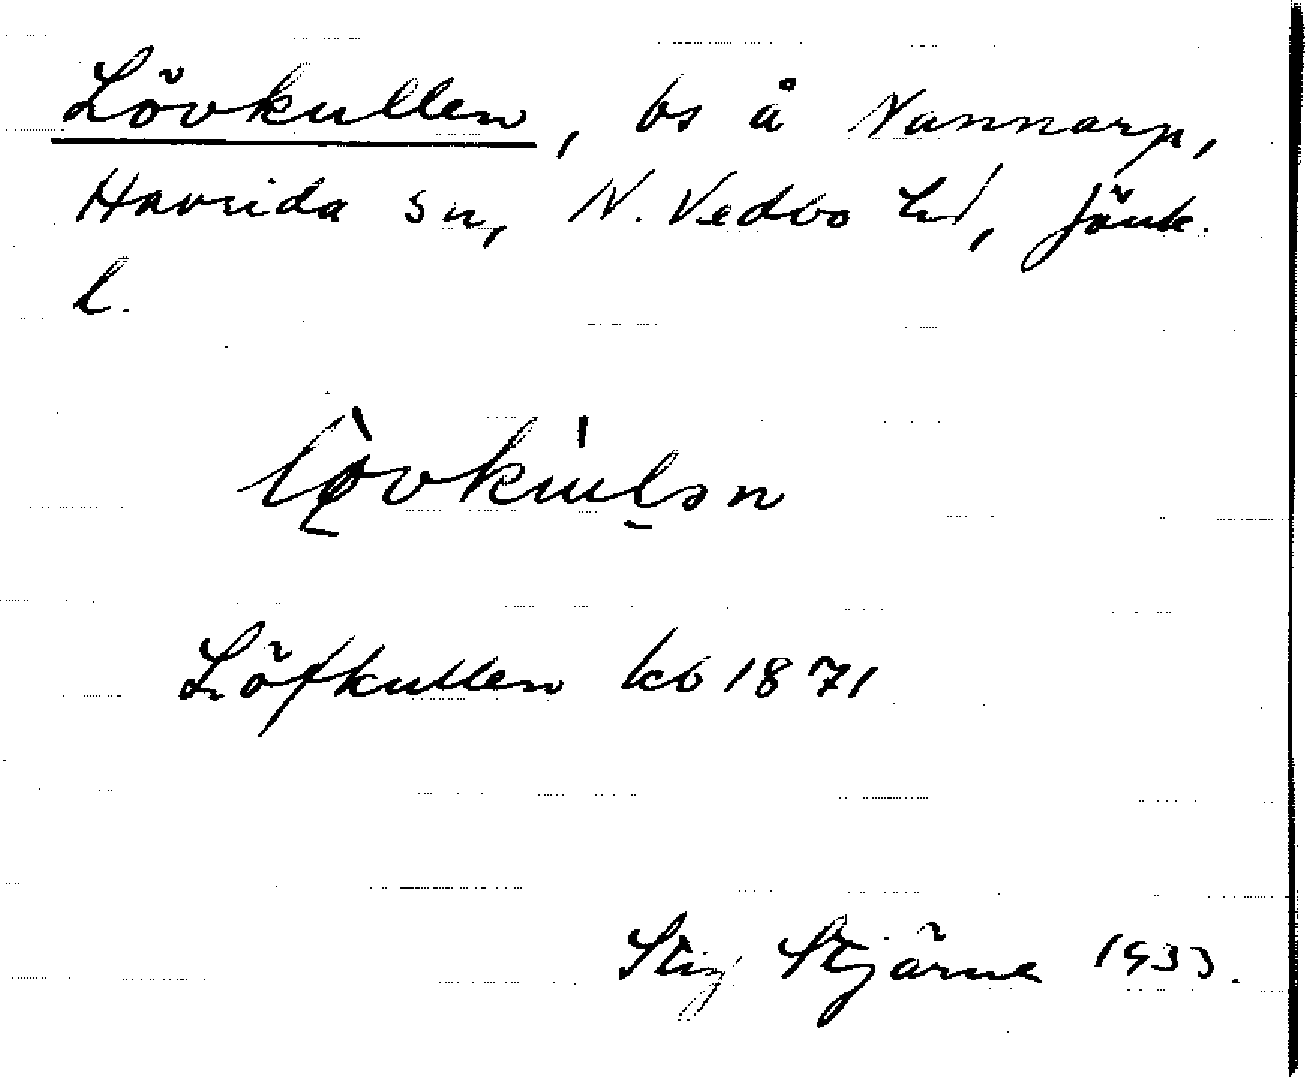 Lövkullen, bs å Nannarp,
Haurida sn, N. Vedbo hd, Jönk.
l.
lø̀vkúlən
Löfkullen kb 1871
Stig Stjärne 1933.